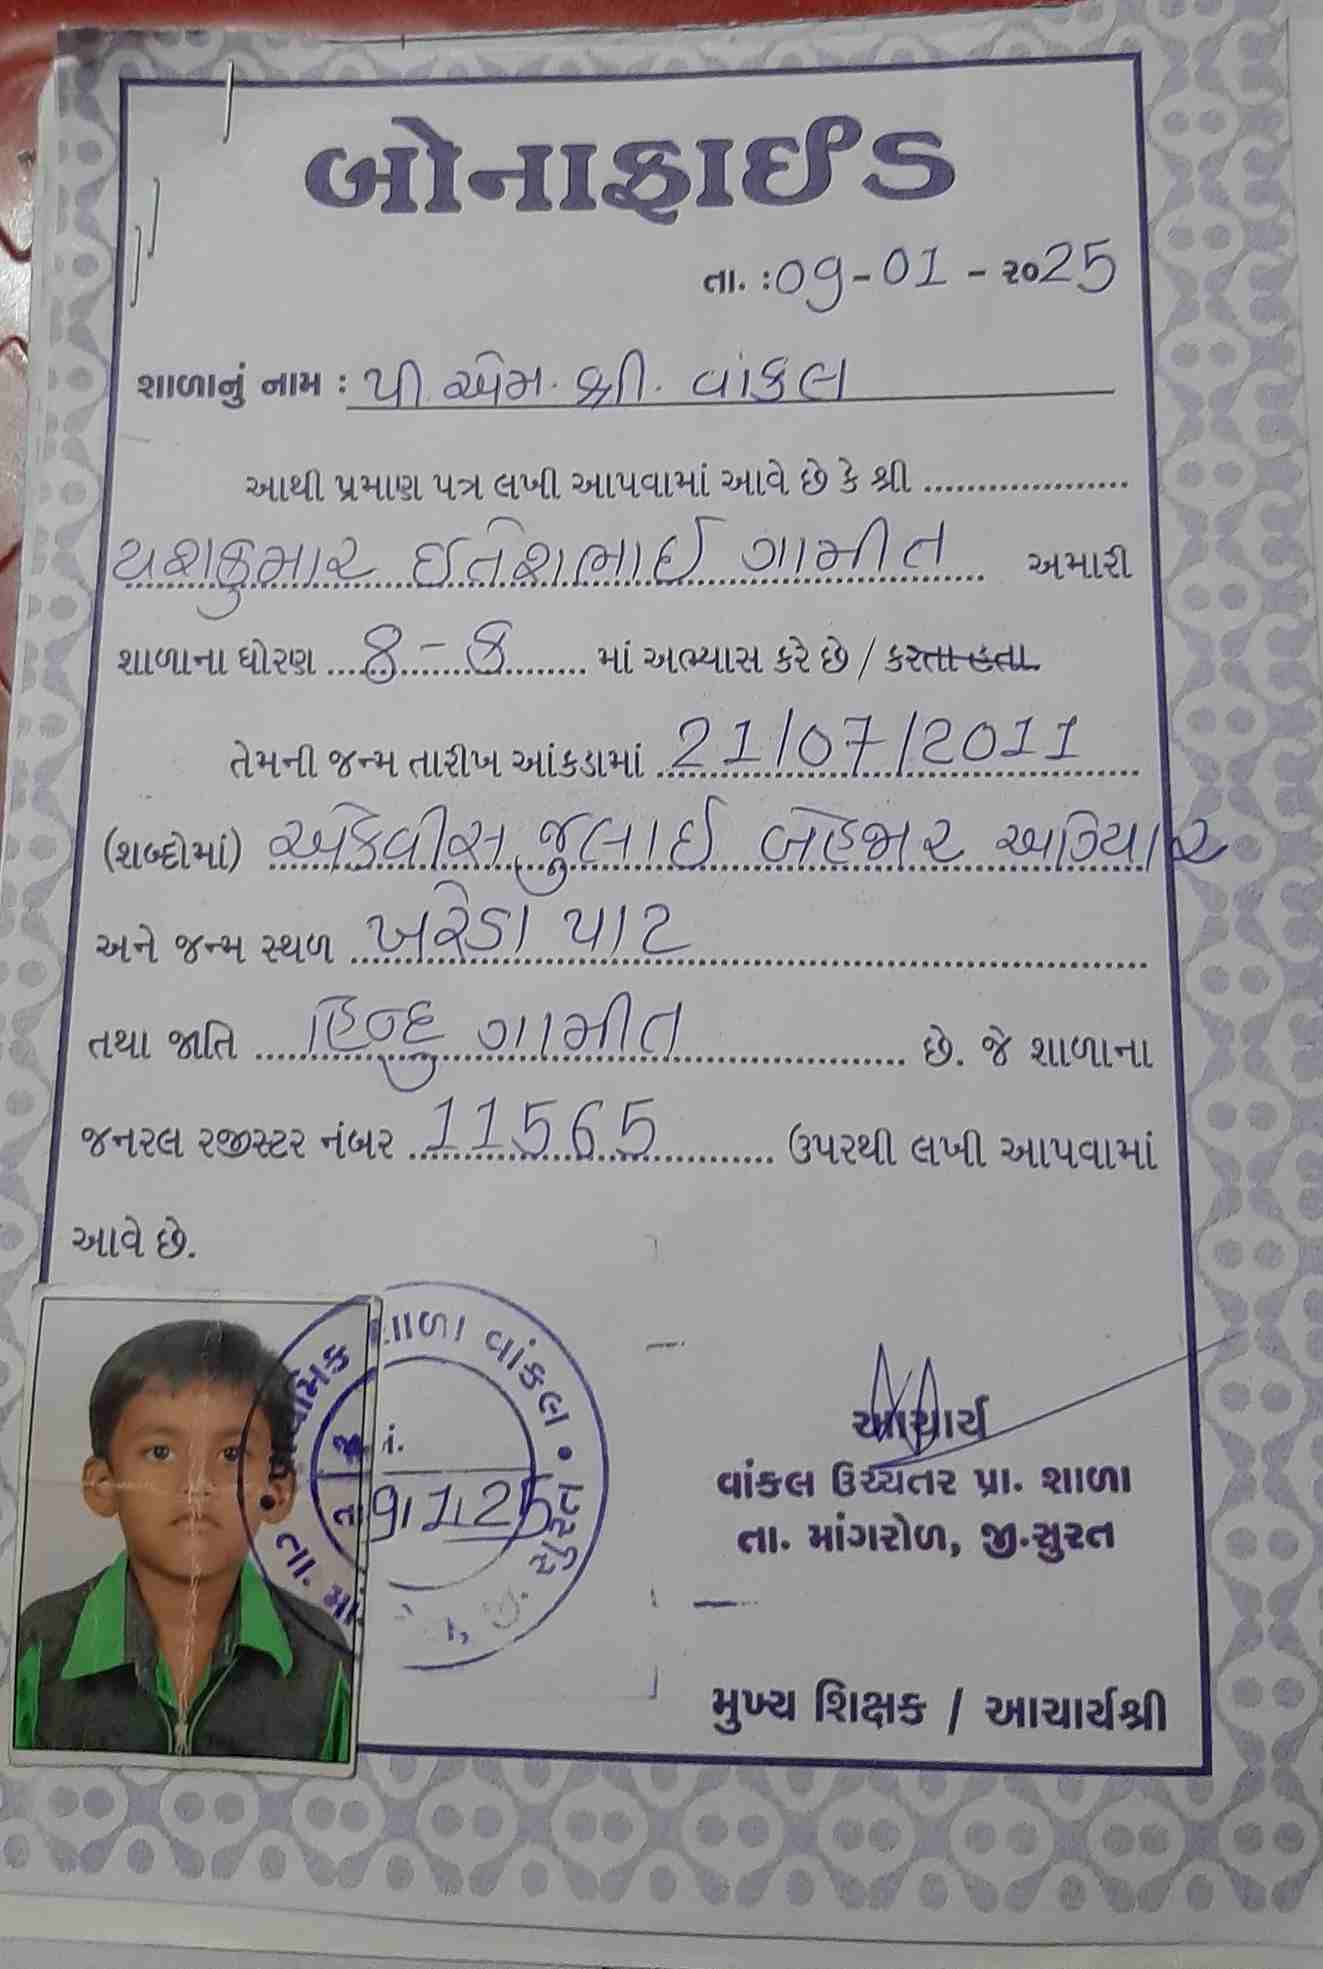 બોનાફાઈડ
તા. : 09-01-૨૦25
શાળાનું નામ : પી. એમ. શ્રી. વાંકલ
આથી પ્રમાણ પત્ર લખી આપવામાં આવે છે કે શ્રી ....................
યશકુમાર ઈતેશભાઈ ગામીત અમારી
શાળાના ધોરણ 8 - ક માં અભ્યાસ કરે છે / કરતા હતા
તેમની જન્મ તારીખ આંકડામાં 21/07/2011
(શબ્દોમાં) એકવીસ જુલાઈ બેહજાર અગિયાર
અને જન્મ સ્થળ ખરેડા પાટ
તથા જાતિ હિન્દુ ગામીત છે. જે શાળાના
જનરલ રજીસ્ટર નંબર 11565 ઉપરથી લખી આપવામાં
આવે છે.
શાળા વાંકલ • સુરત
તા.
9/1/25
આચાર્ય
વાંકલ ઉચ્ચતર પ્રા. શાળા
તા. માંગરોળ, જી.સુરત
મુખ્ય શિક્ષક / આચાર્યશ્રી